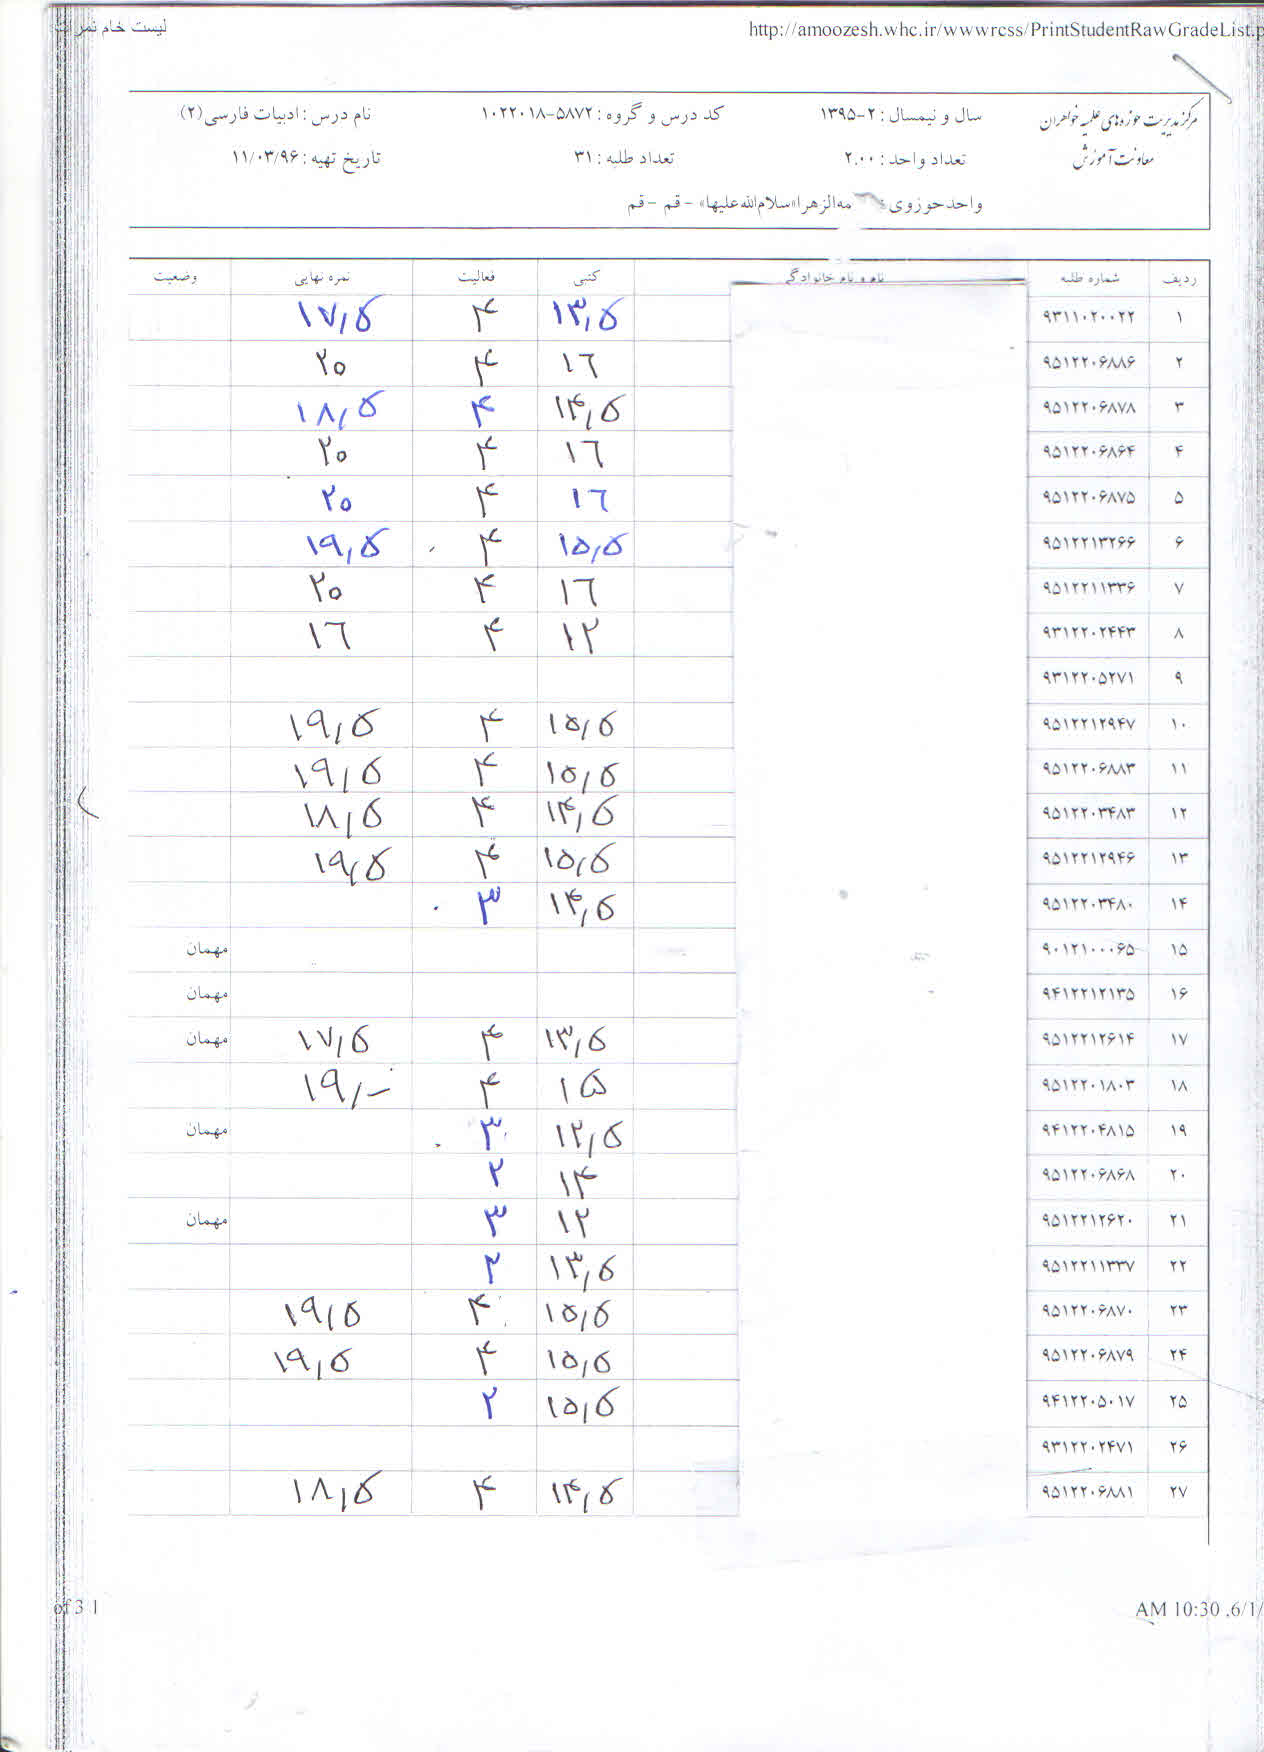 لیست خام نمرات http://amoozesh.whc.ir/wwwrcss/PrintStudentRawGradeList.p
مرکز مدیریت حوزه‌های علمیه خواهران سال و نیمسال : ۲-۱۳۹۵ کد درس و گروه : ۵۸۷۲-۱۰۲۲۰۱۸ نام درس : ادبیات فارسی(۲)
معاونت آموزش تعداد واحد : ۲.۰۰ تعداد طلبه : ۳۱ تاریخ تهیه : ۱۱/۰۳/۹۶
واحد حوزوی : مه‌الزهرا«سلام‌الله‌علیها» - قم - قم
ردیف شماره طلبه نام و نام خانوادگی کتبی فعالیت نمره نهایی وضعیت
۱ ۹۳۱۱۰۲۰۰۲۲ ۱۳,۵ ۴ ۱۷,۵
۲ ۹۵۱۲۲۰۶۸۸۶ ۱۶ ۴ ۲۰
۳ ۹۵۱۲۲۰۶۸۷۸ ۱۴,۵ ۴ ۱۸,۵
۴ ۹۵۱۲۲۰۶۸۶۴ ۱۶ ۴ ۲۰
۵ ۹۵۱۲۲۰۶۸۷۵ ۱۶ ۴ ۲۰
۶ ۹۵۱۲۲۱۳۲۶۶ ۱۵,۵ ۴ ۱۹,۵
۷ ۹۵۱۲۲۱۱۳۳۶ ۱۶ ۴ ۲۰
۸ ۹۳۱۲۲۰۲۴۴۳ ۱۲ ۴ ۱۶
۹ ۹۳۱۲۲۰۵۲۷۱
۱۰ ۹۵۱۲۲۱۲۹۴۷ ۱۵,۵ ۴ ۱۹,۵
۱۱ ۹۵۱۲۲۰۶۸۸۳ ۱۵,۵ ۴ ۱۹,۵
۱۲ ۹۵۱۲۲۰۳۴۸۳ ۱۴,۵ ۴ ۱۸,۵
۱۳ ۹۵۱۲۲۱۲۹۴۶ ۱۵,۵ ۴ ۱۹,۵
۱۴ ۹۵۱۲۲۰۳۴۸۰ ۱۴,۵ ۳
۱۵ ۹۰۱۲۱۰۰۰۶۵ مهمان
۱۶ ۹۴۱۲۲۱۲۱۳۵ مهمان
۱۷ ۹۵۱۲۲۱۲۶۱۴ ۱۳,۵ ۴ ۱۷,۵ مهمان
۱۸ ۹۵۱۲۲۰۱۸۰۳ ۱۵ ۴ ۱۹,-
۱۹ ۹۴۱۲۲۰۴۸۱۵ ۱۲,۵ ۳ مهمان
۲۰ ۹۵۱۲۲۰۶۸۶۸ ۱۴ ۲
۲۱ ۹۵۱۲۲۱۲۶۲۰ ۱۲ ۳ مهمان
۲۲ ۹۵۱۲۲۱۱۳۳۷ ۱۳,۵ ۲
۲۳ ۹۵۱۲۲۰۶۸۷۰ ۱۵,۵ ۴ ۱۹,۵
۲۴ ۹۵۱۲۲۰۶۸۷۹ ۱۵,۵ ۴ ۱۹,۵
۲۵ ۹۴۱۲۲۰۵۰۱۷ ۱۵,۵ ۲
۲۶ ۹۳۱۲۲۰۲۴۷۱
۲۷ ۹۵۱۲۲۰۶۸۸۱ ۱۴,۵ ۴ ۱۸,۵
of 3 1 AM 10:30 ,6/1/